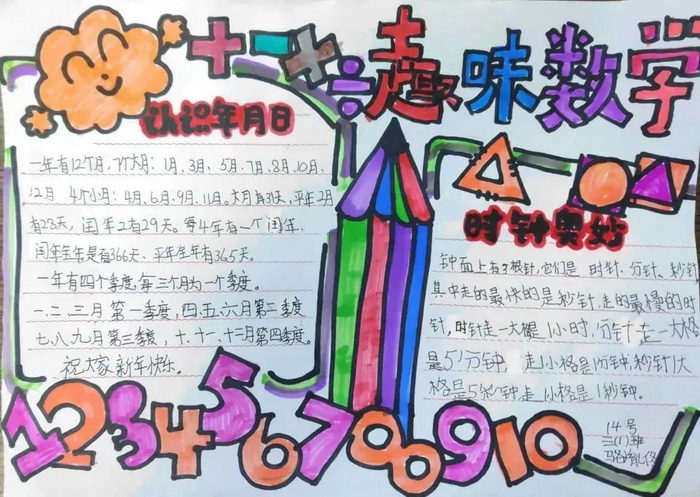 趣味数学
认识年月日
一年有12个月,7个大月:1月、3月、5月、7月、8月、10月、
12月 4个小月:4月、6月、9月、11月。大月有31天,平年2月
有28天,闰年2有29天。每4年有一个闰年,
闰年全年是有366天、平年全年有365天。
一年有四个季度,每三个月为一个季度。
一、二、三月第一季度,四、五、六月第二季度
七、八、九月第三季度,十、十一、十二月第四季度。
祝大家新年快乐。
时钟奥妙
钟面上有3根针,它们是时针、分针、秒针
其中走的最快的是秒针,走的最慢的时
针,时针走一大格是1小时,分针走一大格
是5分钟,走1小格是1分钟,秒针1大
格是5秒钟走1小格是1秒钟。
14号
三(1)班
12345678910